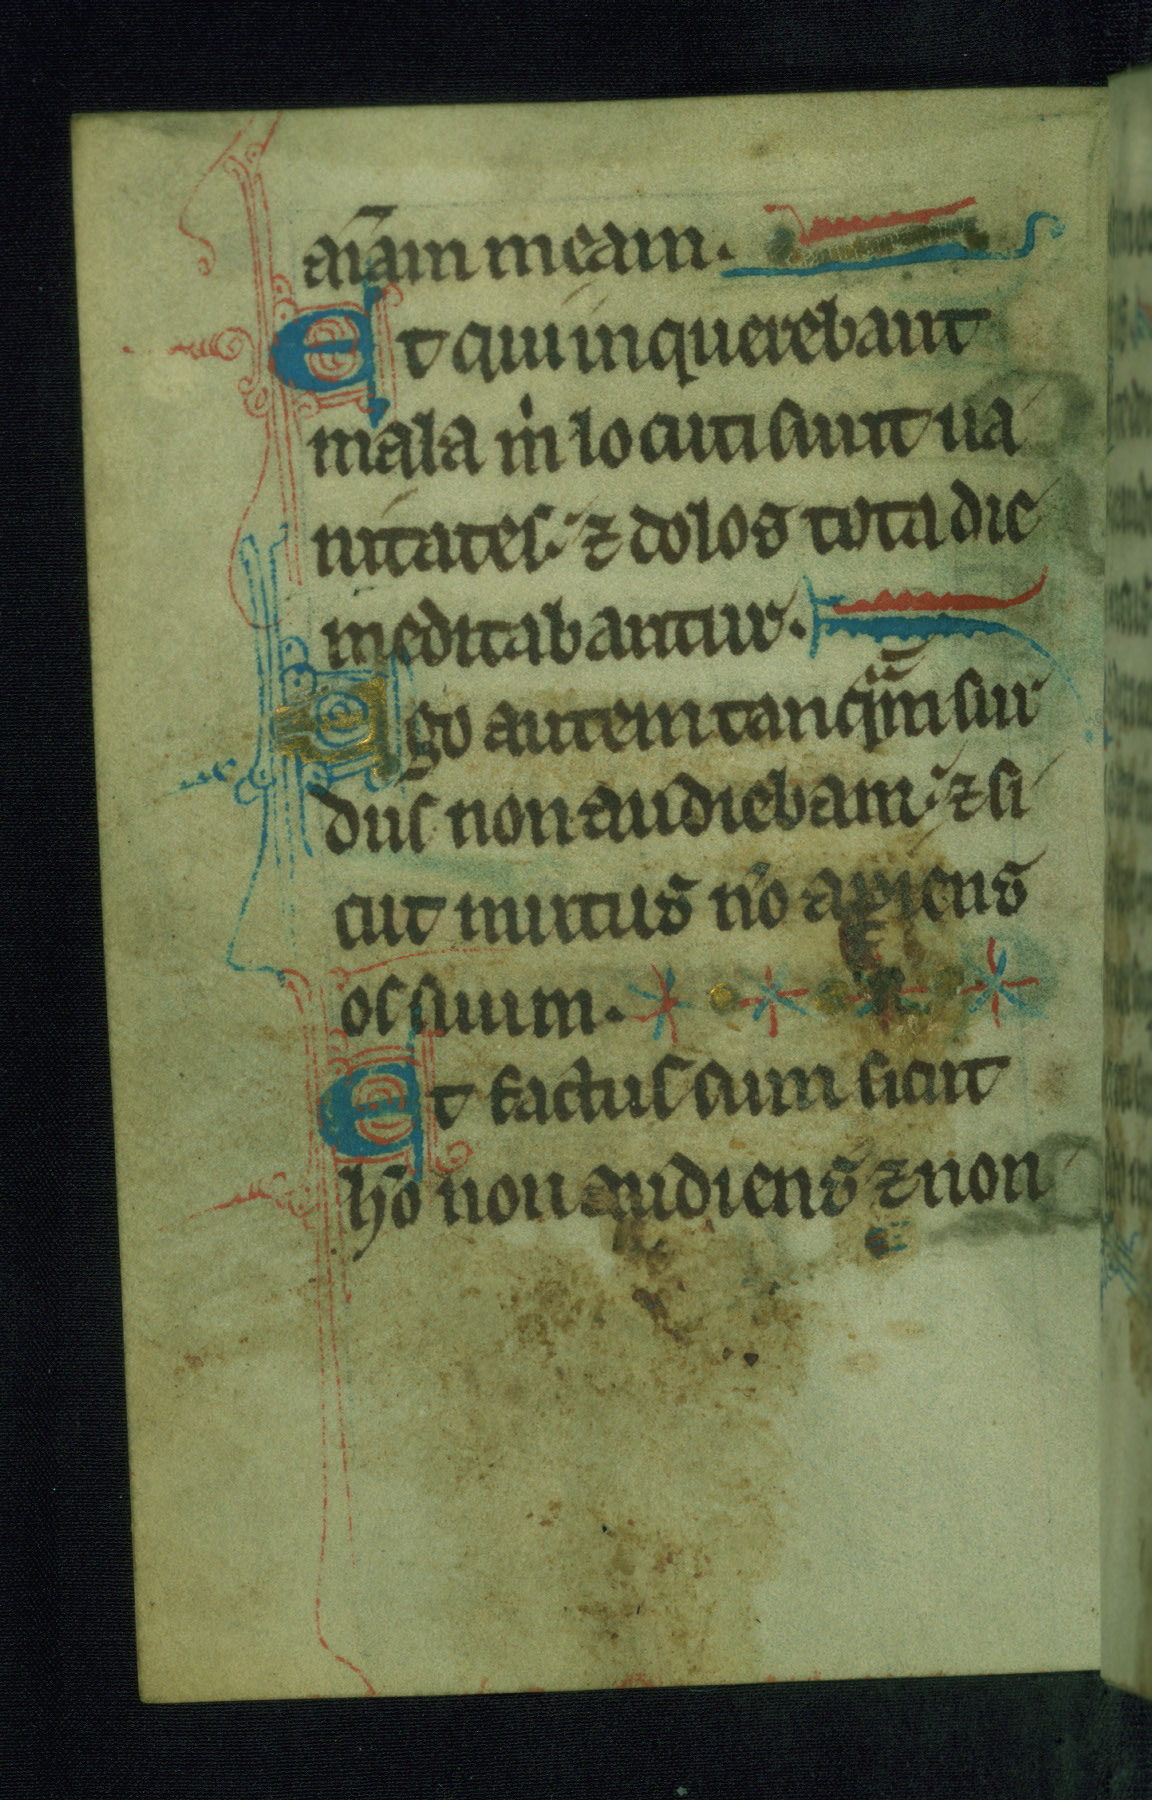 aīam meam.
Et qui inquerebant
mala ṁ locuti sunt ua
nitates. ⁊ dolos tota die
meditabantur.
Ego autem tanq̄m sur
dus non audiebam. ⁊ si
cut mutus nō apiens
os suum.
Et factus sum sicut
hō non audiens ⁊ non